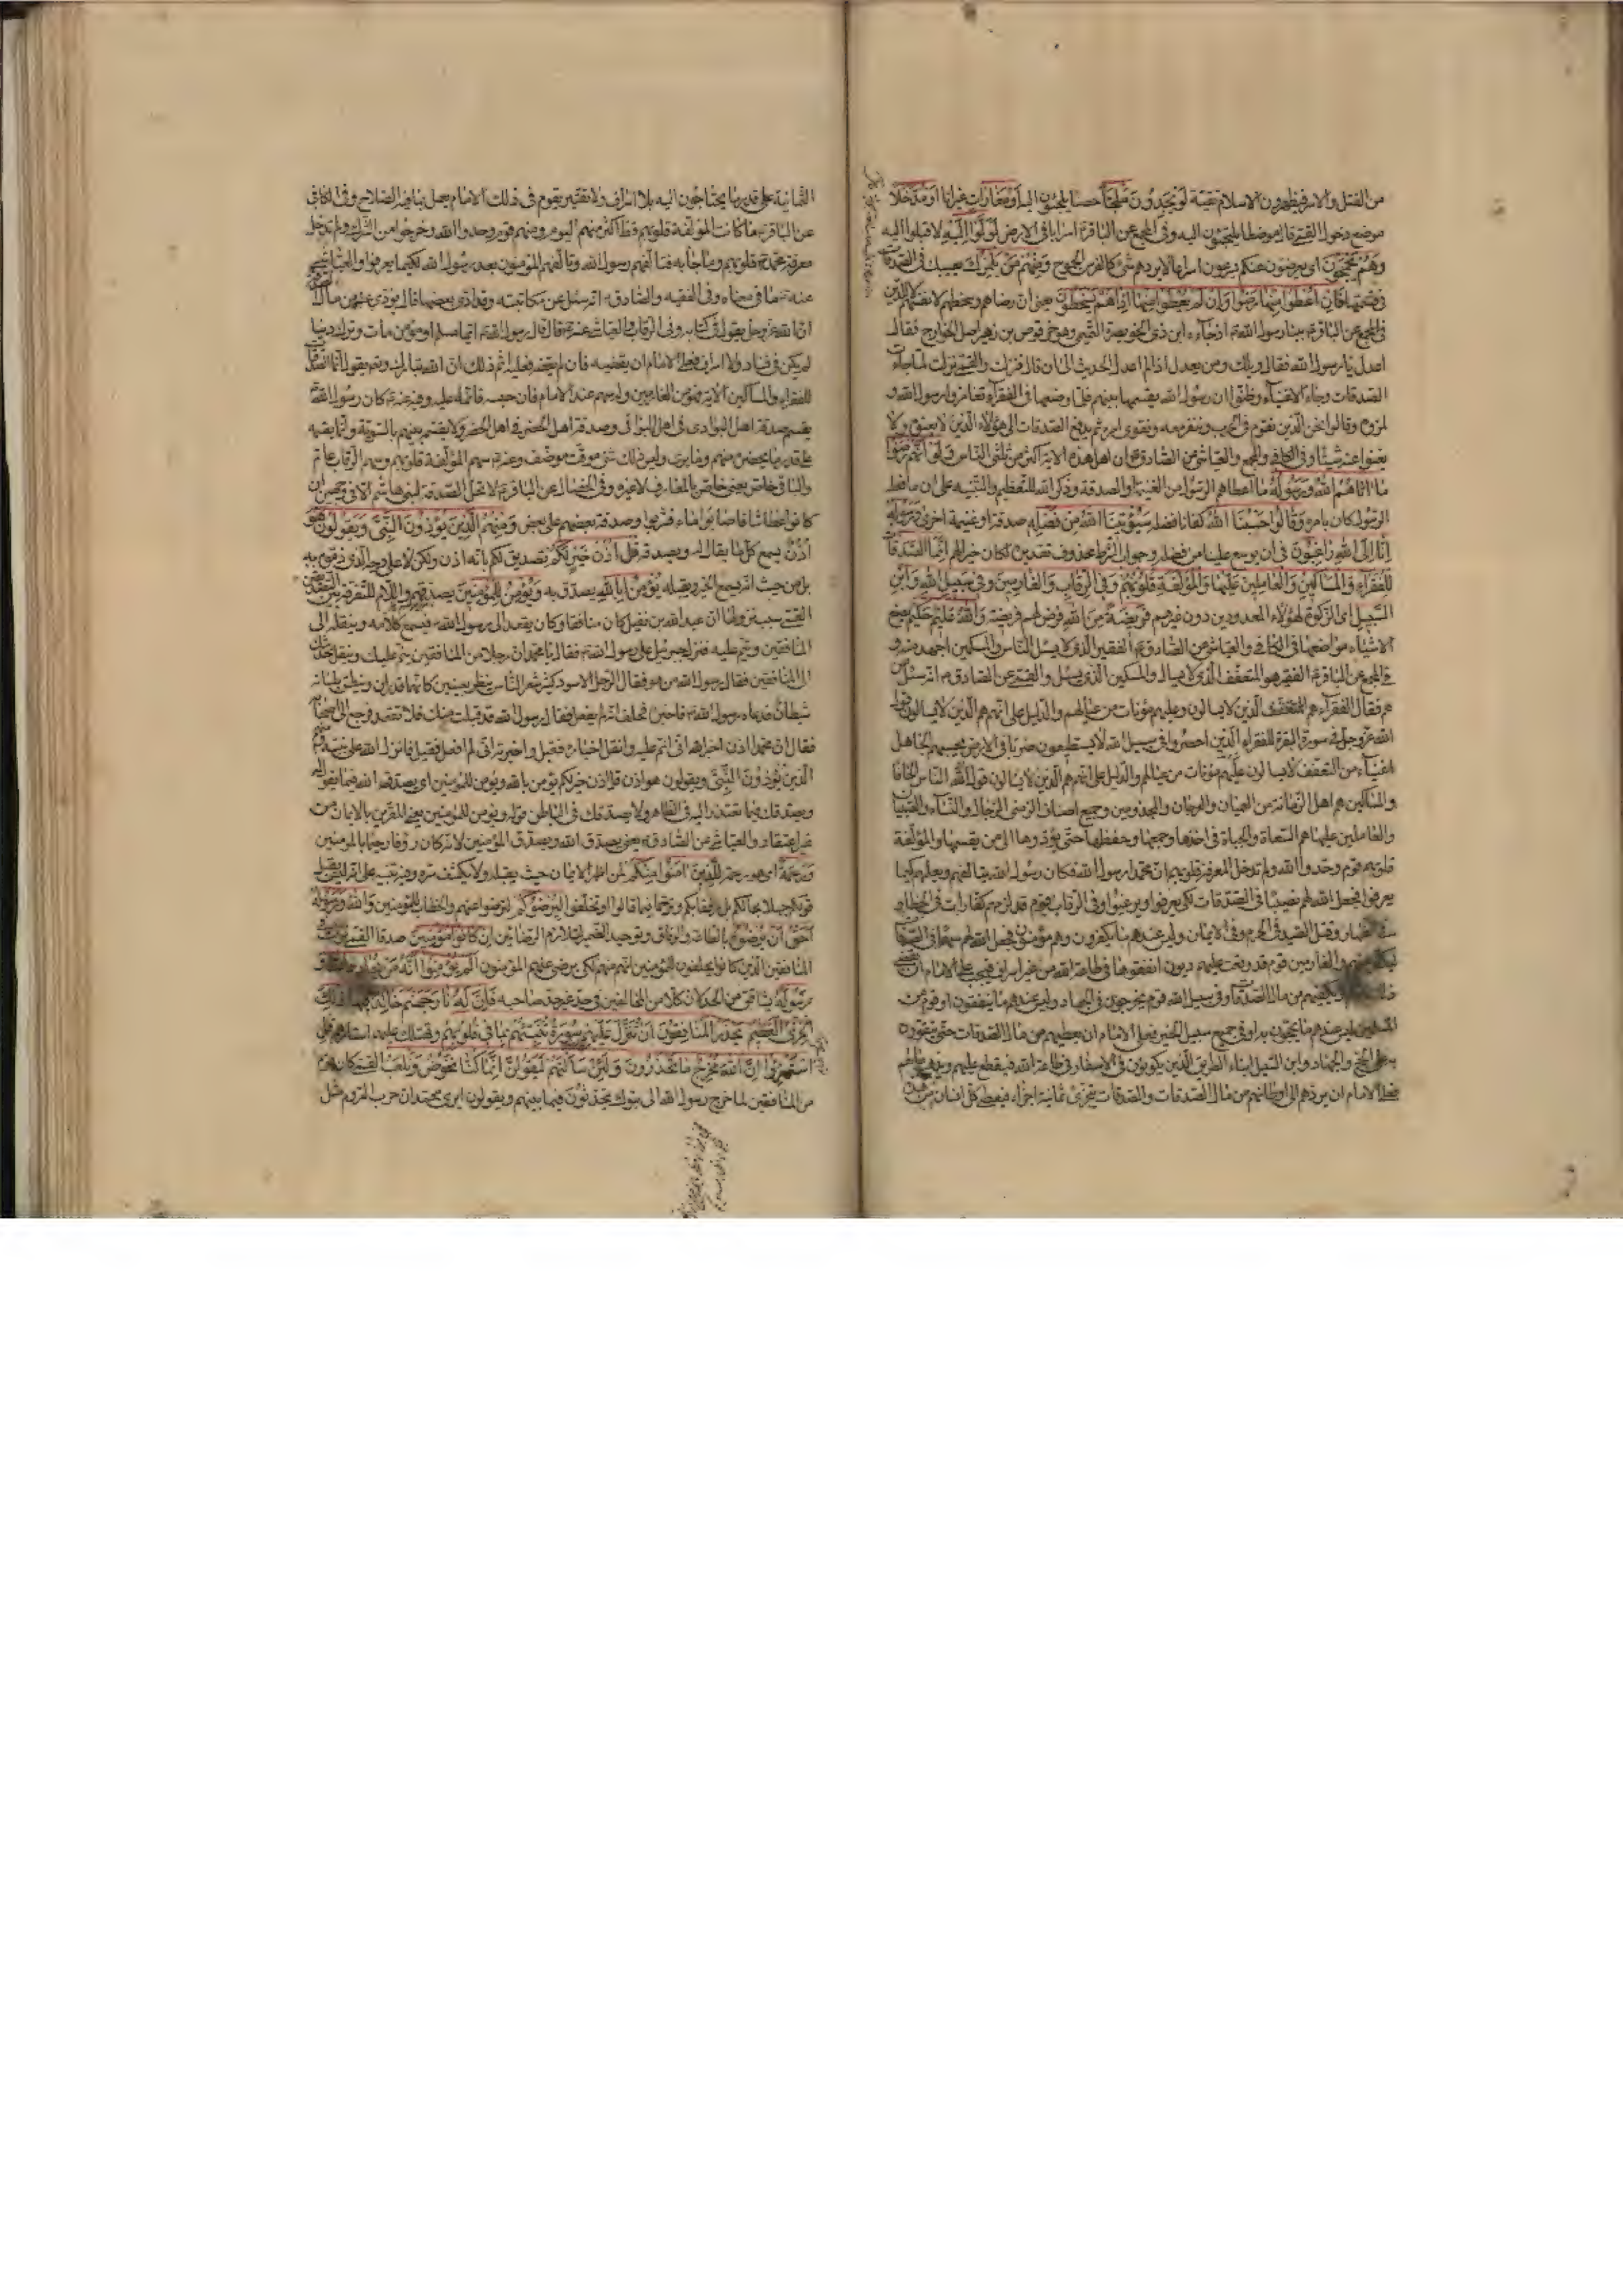 من القتل والاسر فيظهرون الاسلام تقية لو يجدون ملجأ حصنا يلجئون اليه او مغارات غيرانا او مدخلا
موضع دخول القمي قال موضعا يلتجئون اليه وفي المجمع عن الباقر اسرابا في الارض لولوا اليه لاقبلوا اليه
وهم يجمحون اي يعرضون عنكم يسرعون اسراعا لا يردهم شيء كالفرس الجموح ومنهم من يلمزك يعيبك في الصدقات
في قسمتها فان اعطوا منها رضوا وان لم يعطوا منها اذا هم يسخطون يعني ان رضاهم وسخطهم لانفسهم لا للدين
في المجمع عن الباقر بينا رسول الله اذ جاءه ابن ذي الخويصرة التميمي وهو حرقوص بن زهير اصل الخوارج فقال
اعدل يا رسول الله فقال ويلك ومن يعدل اذا لم اعدل الحديث الى ان قال فنزلت والقمي نزلت لما جاءت
الصدقات وجاء الاغنياء وظنوا ان رسول الله يقسمها بينهم فلما وضعها في الفقراء تغامزوا رسول الله و
لمزوه وقالوا نحن الذين نقوم في الحرب وننفر معه ونقوى امره ثم يدفع الصدقات الى هؤلاء الذين لا يعينونه ولا
يغنون عنه شيئا وفي الكافي والمجمع والعياشي عن الصادق ان اهل هذه الاية اكثر من ثلثي الناس ولو انهم رضوا
ما اتاهم الله ورسوله ما اعطاهم الرسول من الغنيمة او الصدقة وذكر الله للتعظيم والتنبيه على ان ما فعله
الرسول كان بامره وقالوا حسبنا الله كفانا فضله سيؤتينا الله من فضله صدقة او غنيمة اخرى ورسوله
انا الى الله راغبون في ان يوسع علينا من فضله وجواب الشرط محذوف تقديره لكان خيرا لهم انما الصدقات
للفقراء والمساكين والعاملين عليها والمؤلفة قلوبهم وفي الرقاب والغارمين وفي سبيل الله وابن
السبيل اي الزكوة لهؤلاء المعدودين دون غيرهم فريضة من الله فرض لهم فريضة والله عليم حكيم يضع
الاشياء مواضعها في الكافي والعياشي عن الصادق الفقير الذي لا يسئل الناس والمسكين اجهد منه و
في المجمع عن الباقر الفقير هو المتعفف الذي لا يسال والمسكين الذي يسئل والقمي عن الصادق انه سئل من
هم فقال الفقراء هم الذين لا يسالون وعليهم مؤنات من عيالهم والدليل على انهم هم الذين لا يسالون قول
الله عز وجل في سورة البقرة للفقراء الذين احصروا في سبيل الله لا يستطيعون ضربا في الارض يحسبهم الجاهل
اغنياء من التعفف لا يسالون الناس الحافا
والمساكين هم اهل الزمانة من العميان والعرجان والمجذومين وجميع اصناف الزمنى الرجال والنساء والصبيان
والعاملين عليها هم السعاة والجباة في اخذها وجمعها وحفظها حتى يؤدوها الى من يقسمها والمؤلفة
قلوبهم قوم وحدوا الله ولم تدخل المعرفة قلوبهم ان محمدا رسول الله فكان رسول الله يتالفهم ويعلمهم كيما
يعرفوا فجعل الله لهم نصيبا في الصدقات لكي يعرفوا ويرغبوا وفي الرقاب قوم قد لزمهم كفارات في الخطاء و
في الظهار وقتل الصيد في الحرم وفي الايمان وليس عندهم ما يكفرون وهم مؤمنون فجعل الله لهم سهما في الصدقات
ليكفر عنهم والغارمين قوم قد وقعت عليهم ديون انفقوها في طاعة الله من غير اسراف فيجب على الامام ان يقضي
من مال الصدقات وفي سبيل الله قوم يخرجون في الجهاد وليس عندهم ما ينفقون او قوم من
المسلمين ليس عندهم ما يحجون به او في جميع سبيل الخير فعلى الامام ان يعطيهم من مال الصدقات حتى ينفقوه
على الحج والجهاد وابن السبيل ابناء الطريق الذين يكونون في الاسفار في طاعة الله فيقطع عليهم ويذهب مالهم
فعلى الامام ان يردهم الى اوطانهم من مال الصدقات والصدقات تتجزى ثمانية اجزاء فيعطى كل انسان من هذه
الثمانية على قدر ما يحتاجون اليه بلا اسراف ولا تقتير يقوم في ذلك الامام يعمل بما فيه الصلاح وفي الكافي
عن الباقر ما كانت المؤلفة قلوبهم قط اكثر منهم اليوم وهم قوم وحدوا الله وخرجوا من الشرك ولم تدخل
معرفة محمد قلوبهم وما جاء به فتالفهم رسول الله وتالفهم المؤمنون بعد رسول الله لكيما يعرفوا والعياشي
عنه ما في معناه وفي الفقيه والصادق انه سئل عن مكاتب وقد ادى بعضها قال يؤدى عنه من مال
ان الله عز وجل يقول في كتابه وفي الرقاب والعياشي عنه قال قال رسول الله ايما مسلم او مؤمن مات وترك دينا
لم يكن في فساد ولا اسراف فعلى الامام ان يقضيه فان لم يقضه فعليه اثم ذلك ان الله تبارك وتعالى يقول انما الصدقات
للفقراء والمساكين الاية فهو من الغارمين وله سهم عند الامام فان حبسه فاثمه عليه وفيه عنه كان رسول الله
يقسم صدقة اهل البوادي في اهل البوادي وصدقة اهل الحضر في اهل الحضر ولا يقسم بينهم بالسوية وانما يقسمه
على قدر ما يحضره منهم وما يرى وليس في ذلك شيء موقت موظف وعنه سهم المؤلفة قلوبهم وسهم الرقاب عام
والباقي خاص يعني خاص بالعارف لا غيره وفي الخصال عن الباقر لا تحل الصدقة لبني هاشم الا في وجهين ان
كانوا عطاشا فاصابوا ماء فشربوا وصدقة بعضهم على بعض ومنهم الذين يؤذون النبي ويقولون هو
اذن يسمع كل ما يقال له ويصدقه قل اذن خير لكم تصديق لكم بانه اذن ولكن لا على وجه الذي ذموه به
بل من حيث انه يسمع الخير ويقبله يؤمن بالله يصدق به ويؤمن للمؤمنين يصدقهم واللام للتفرقة
القمي سبب نزولها ان عبد الله بن نفيل كان منافقا وكان يقعد الى رسول الله فيسمع كلامه وينقله الى
المنافقين وينم عليه فنزل جبرئيل على رسول الله فقال يا محمد ان رجلا من المنافقين ينم عليك وينقل حديثك
الى المنافقين فقال رسول الله من هو فقال الرجل الاسود كثير شعر الراس ينظر بعينين كانهما قدران وينطق بلسان
شيطان فدعاه رسول الله فاخبره فحلف انه لم يفعل فقال رسول الله قد قبلت منك فلا تقعد فرجع الى اصحابه
فقال ان محمدا اذن اخبره الله اني انم عليه وانقل اخباره فقبل واخبرته اني لم افعل فقبل فانزل الله على نبيه ومنهم
الذين يؤذون النبي ويقولون هو اذن قل اذن خير لكم يؤمن بالله ويؤمن للمؤمنين اي يصدق الله فيما يقول له
ويصدقك فيما تعتذر اليه في الظاهر ولا يصدقك في الباطن قوله ويؤمن للمؤمنين يعني المقرين بالايمان من
غير اعتقاد والعياشي عن الصادق يعني يصدق الله ويصدق المؤمنين لانه كان رؤوفا رحيما بالمؤمنين
ورحمة اي هو رحمة للذين امنوا منكم لمن اظهر الايمان حيث يقبله ولا يكشف سره وفيه تنبيه على انه ليس يقبل
قولكم جهلا بحالكم بل رفقا بكم وترحما فيما قالوا او تخلفوا ليرضوكم لترضوا عنهم والخطاب للمؤمنين والله ورسوله
احق ان يرضوه بالطاعة والوفاق وتوحيد الضمير لتلازم الرضائين ان كانوا مؤمنين صدقا القمي نزلت في
المنافقين الذين كانوا يحلفون للمؤمنين انهم منهم لكي يرضى عنهم المؤمنون الم يعلموا انه من يحادد الله و
رسوله يشاقق من الحد لان كلا من المخالفين في حد غير حد صاحبه فان له نار جهنم خالدا فيها ذلك
الخزي العظيم يحذر المنافقون ان تنزل عليهم سورة تنبئهم بما في قلوبهم وتهتك عليهم استارهم قل
استهزؤا ان الله مخرج ما تحذرون ولئن سالتهم ليقولن انما كنا نخوض ونلعب القمي كان قوم
من المنافقين لما خرج رسول الله الى تبوك يتحدثون فيما بينهم ويقولون ايرى محمد ان حرب الروم مثل